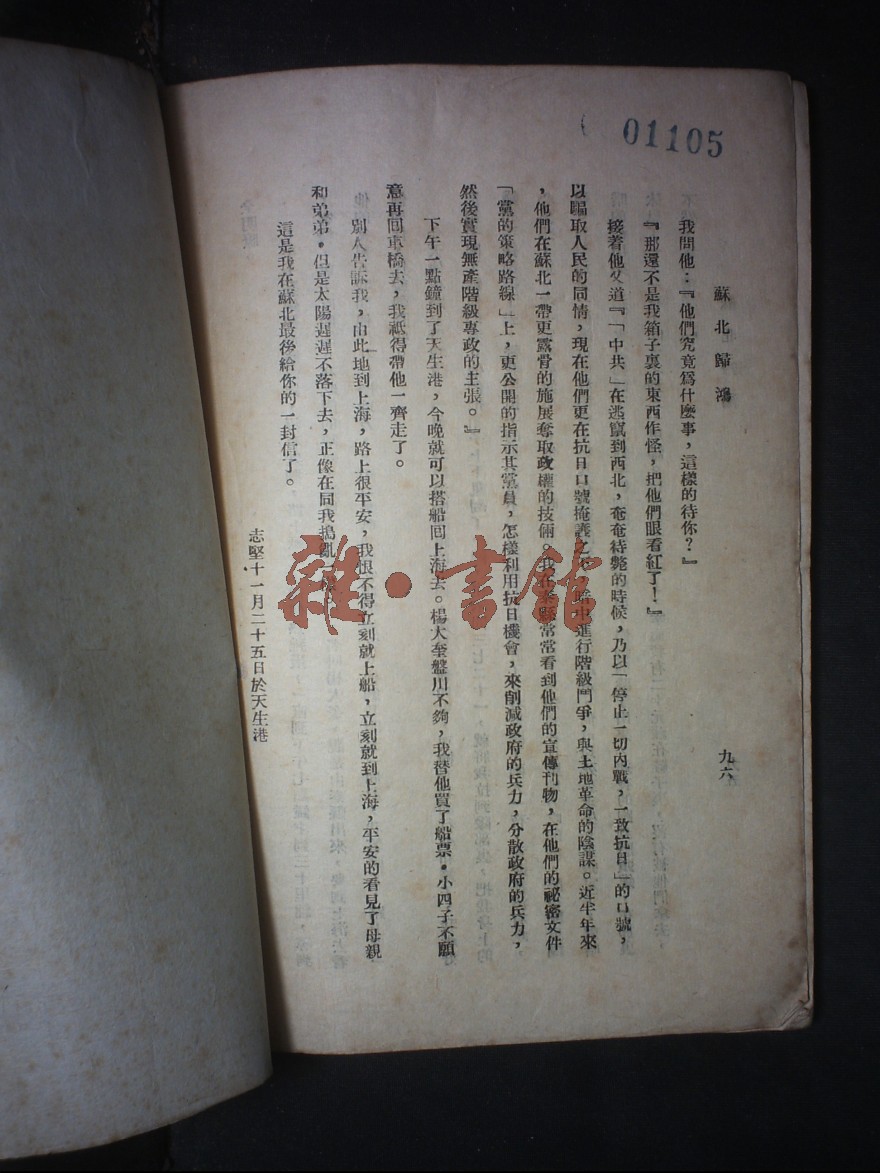 01105
蘇北歸鴻
九六
我問他：『他們究竟爲什麼事，這樣的待你？』
『那還不是我箱子裏的東西作怪，把他們眼看紅了！』
接着他又道『「中共」在逃竄到西北，奄奄待斃的時候，乃以「停止一切內戰，一致抗日」的口號，
以騙取人民的同情，現在他們更在抗日口號掩護之下，暗中進行階級鬥爭，與土地革命的陰謀。近半年來
，他們在蘇北一帶更露骨的施展奪取政權的技倆。我在泰縣常常看到他們的宣傳刊物，在他們的祕密文件
「黨的策略路線」上，更公開的指示其黨員，怎樣利用抗日機會，來削減政府的兵力，分散政府的兵力，
然後實現無產階級專政的主張。』
下午一點鐘到了天生港，今晚就可以搭船回上海去。楊大奎盤川不夠，我替他買了船票。小四子不願
意再回車橋去，我祇得帶他一齊走了。
別人告訴我，由此地到上海，路上很平安，我恨不得立刻就上船，立刻就到上海，平安的看見了母親
和弟弟。但是太陽遲遲不落下去，正像在同我搗亂
這是我在蘇北最後給你的一封信了。
志堅十一月二十五日於天生港
雜·書館